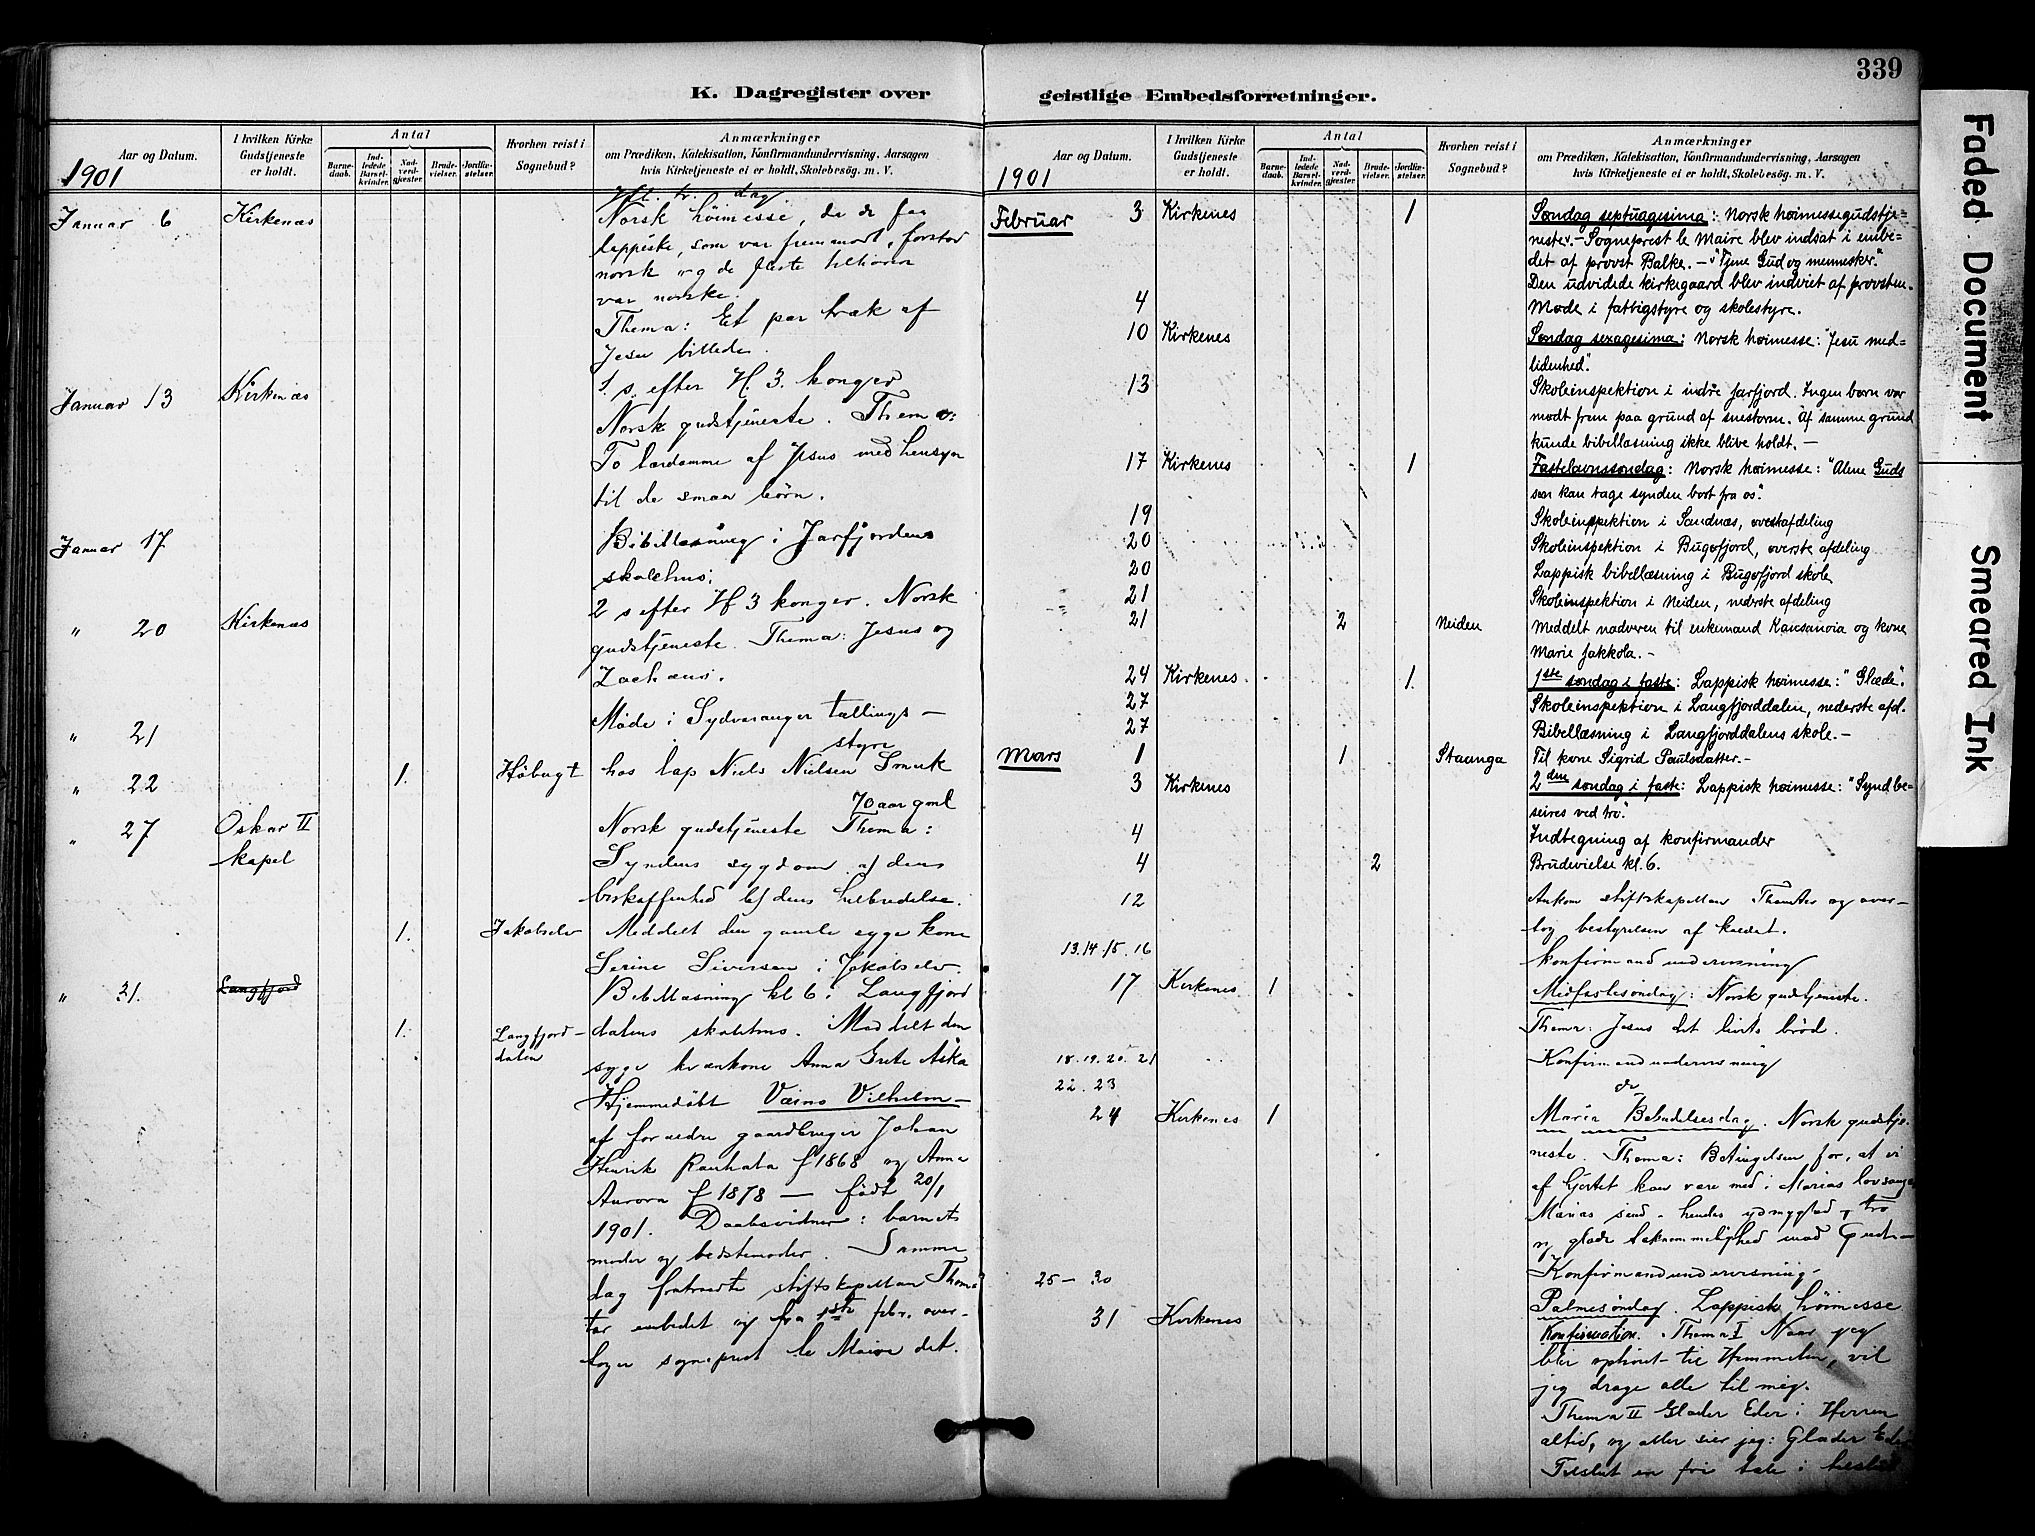 339
K. Dagregister over geistlige Embedsforretninger.
Faded Document Smeared Ink
Aar og Datum.
I hvilken Kirke Gudstjeneste er holdt.
Antal
Barnedaab.
Indledede Barselkvinder.
Nadverdgjester
Brudevielser.
Jordfæstelser.
Hvorhen reist i Sognebud?
Anmærkninger
om Prædiken, Katekisation, Konfirmandundervisning, Aarsagen
hvis Kirketjeneste ei er holdt, Skolebesøg. m. V.
1901
Januar 6 Kirkenæs
Norsk höimesse, da de faa
lappiske, som var fremmödt, forstod
norsk og de fleste tilhörere
var norske.
Thema: Et par træk af
Jesu billede.
Januar 13 Kirkenæs 1 s. efter H. 3. konger
Norsk gudstjeneste. Thema:
To lærdomme af Jesus med hensyn
til de smaa börn.
Januar 17 Bibellæsning i Jarfjordens
skolehus.
" 20 Kirkenæs 2 s efter H 3 konger. Norsk
gudstjeneste. Thema: Jesus og
Zachæus.
" 21 Möde i Sydvaranger tællings-
styre
" 22 1. Höbugt hos lap Niels Nielsen Smuk
70 aar gml
" 27 Oskar II kapel Norsk gudstjeneste Thema:
Syndens sygdom af dens
beskaffenhed af dens helbredelse.
1. Jakobselv Meddelt den gamle syge kone
Serine Siversen i Jakobselv.
" 31. Langfjord Bibellæsning kl 6 i Langfjord
1. Langfjorddalen dalens skolehus. Meddelt den
syge kvænkone Anna Grete Aska
Hjemmedöbt Væino Vilhelm -
af forældre gaardbruger Johan
Henrik Rauhala f 1868 og Anna
Aurora f 1878 — født 20/1
1901. Daabsvidner: barnets
moder og bedstemoder. Samme
dag fratraadte stiftskapellan Thomæ
ter embedet og fra 1ste febr. over-
toger sogneprest le Maire det.
Aar og Datum.
I hvilken Kirke Gudstjeneste er holdt.
Antal
Barnedaab.
Indledede Barselkvinder.
Nadverdgjester
Brudevielser.
Jordfæstelser.
Hvorhen reist i Sognebud?
Anmærkninger
om Prædiken, Katekisation, Konfirmandundervisning, Aarsagen
hvis Kirketjeneste ei er holdt, Skolebesøg. m. V.
1901
Februar 3 Kirkenes 1 Søndag septuagesima: Norsk høimessegudstje-
neste. - Sogneprest le Maire blev indsat i embe-
det af provst Balke. - "Tjene Gud og mennesker."
Den udvidede kirkegaard blev indviet af provsten.
4 Møde i fattigstyre og skolestyre.
10 Kirkenes Søndag sexagesima: Norsk høimesse: "Jesu med-
lidenhed".
13 Skoleinspektion i indre Jarfjord. Ingen børn var
mødt frem paa grund af snestorm. Af samme grund
kunde bibellæsning ikke blive holdt. -
17 Kirkenes 1 Fastelavnssøndag: Norsk høimesse: "Alene Guds
søn kan tage synden bort fra os".
19 Skoleinspektion i Sandnæs, øvest afdeling
20 Skoleinspektion i Bugøfjord, øverste afdeling
20 Lappisk bibellæsning i Bugøfjord skole
21 Skoleinspektion i Neiden, nederste afdeling
21 2 Neiden Meddelt nadveren til enkemand Kansanoia og kone
Marie Jakkola. -
24 Kirkenes 1 1ste søndag i faste: Lappisk høimesse: "Glæde".
27 Skoleinspektion i Langfjorddalen, nederste afd.
27 Bibellæsning i Langfjorddalens skole. -
Mars 1 1 Staanga Til kone Sigrid Paulsdatter. -
3 Kirkenes 2den søndag i faste: Lappisk høimesse: "Synd be-
seires ved tro".
4 Indtegning af konfirmander
4 2 Brudevielse kl. 6.
12 Ankom stiftskapellan Thomter og over-
tog bestyrelsen af kaldet.
13. 14. 15. 16 Konfirmandundervisning
17 Kirkenes 1 Midfastesöndag: Norsk gudstjeneste.
Thema: Jesus det livets bröd.
18. 19. 20. 21 Konfirmandundervisning
22. 23 do
24 Kirkenes 1 Mariæ Bebudelsesdag. Norsk gudstje-
neste. Thema: Betingelsen for, at vi
af hjertet kan være med i Marias lovsang
Marias sind - hendes ydmyghed, tro
og glade taknemmelighed mod Gud. -
25 - 30 Konfirmandundervisning.
31 Kirkenes Palmesöndag. Lappisk höimesse
Konfirmation. Thema I Naar jeg
blir ophöiet til Himmelen, vil
jeg drage alle til mig.
Thema II Glæder Eder i Herren
altid, og atter sier jeg: Glæder Eder
Tilslut en fri tale i